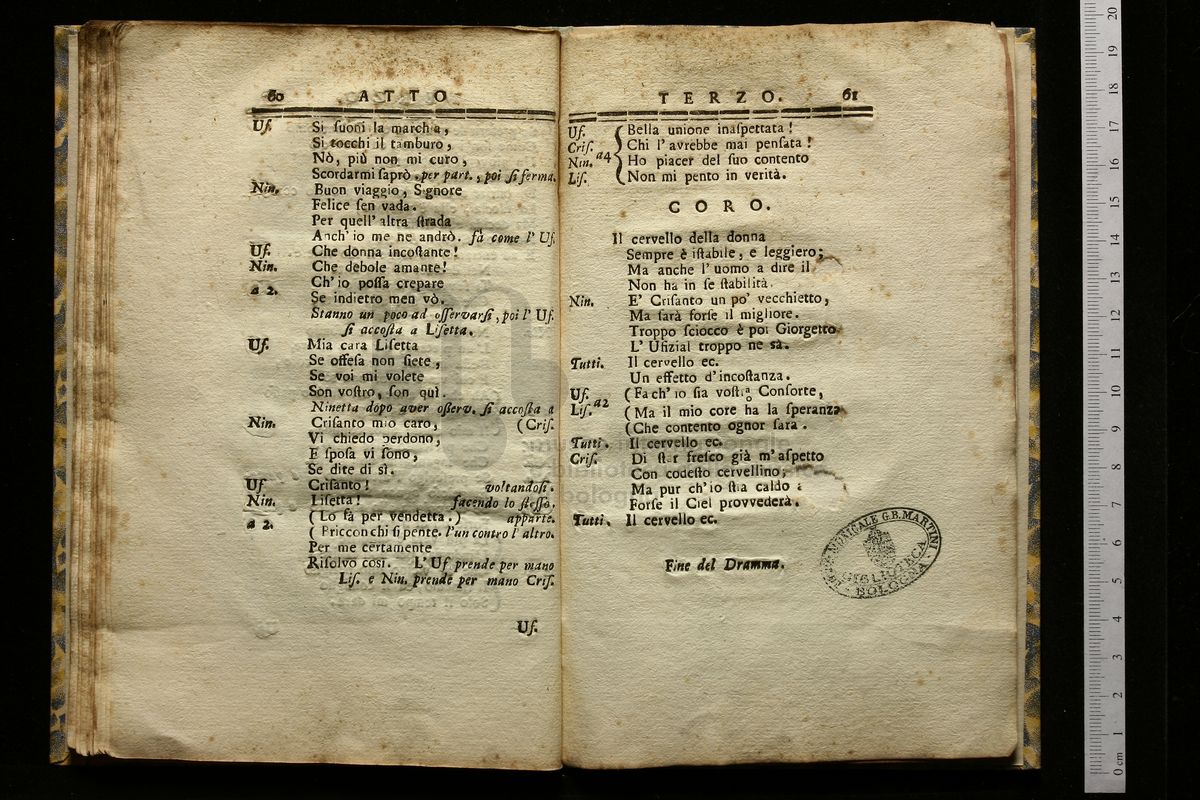 60 ATTO
Uf. Si ſuoni la marcha,
Si tocchi il tamburo,
Nò, più non mi curo,
Scordarmi ſaprò. per part., poi ſi ferma.
Nin. Buon viaggio, Signore
Felice ſen vada.
Per quell' altra ſtrada
Anch' io me ne andrò. fà come l' Uf.
Uf. Che donna incoſtante!
Nin. Che debole amante!
a 2. Ch' io poſſa crepare
Se indietro men vò.
Stanno un poco ad oſſervarſi, poi l' Uf.
ſi accoſta a Liſetta.
Uf. Mia cara Liſetta
Se offeſa non ſiete,
Se voi mi volete
Son voſtro, ſon quì.
Ninetta dopo aver oſſerv. ſi accoſta a
Nin. Criſanto mio caro, (Criſ.
Vi chiedo perdono,
E ſpoſa vi ſono,
Se dite di sì.
Uf. Criſanto! voltandoſi.
Nin. Liſetta! facendo lo ſteſſo.
a 2. (Lo fà per vendetta.) apparte.
(Briccon chi ſi pente. l'un contro l'altro.
Per me certamente
Riſolvo così. L'Uf prende per mano
Liſ. e Nin. prende per mano Criſ.
Uf.
TERZO. 61
Uf. Bella unione inaſpettata!
Criſ. Chi l' avrebbe mai penſata!
Nin. a4 Ho piacer del ſuo contento
Liſ. Non mi pento in verità.
CORO.
Il cervello della donna
Sempre è iſtabile, e leggiero;
Ma anche l' uomo a dire il
Non ha in ſe ſtabilità.
Nin. E' Criſanto un po' vecchietto,
Ma ſarà forſe il migliore.
Troppo ſciocco è poi Giorgetto
L' Ufizial troppo ne sà.
Tutti. Il cervello ec.
Un effetto d'incoſtanza.
Uf. (Fa ch' io ſia Conſorte,
Liſ. a2 (Ma il mio core ha la ſperanza
(Che contento ognor ſarà.
Tutti. Il cervello ec.
Criſ. Di ſtar freſco già m'aſpetto
Con codeſto cervellino,
Ma pur ch'io ſtia caldo
Forſe il Ciel provvederà.
Tutti. Il cervello ec.
Fine del Dramma.
MUSICALE G.B. MARTINI
BIBLIOTECA
BOLOGNA
0 cm 1 2 3 4 5 6 7 8 9 10 11 12 13 14 15 16 17 18 19 20